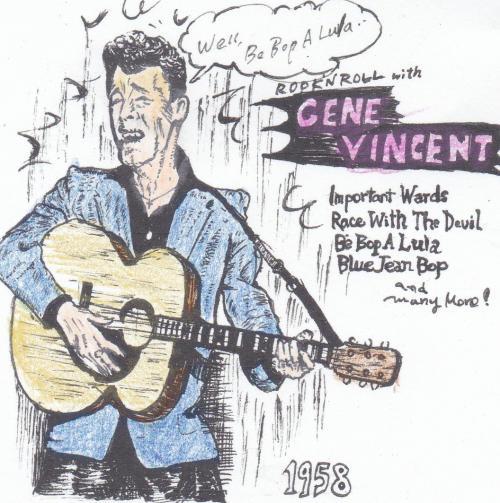 Well,
Be Bop A Lula..
ROCK'N ROLL with
GENE
VINCENT
Important Wards
Race With The Devil
Be Bop A Lula
Blue Jean Bop
and
many More!
1958